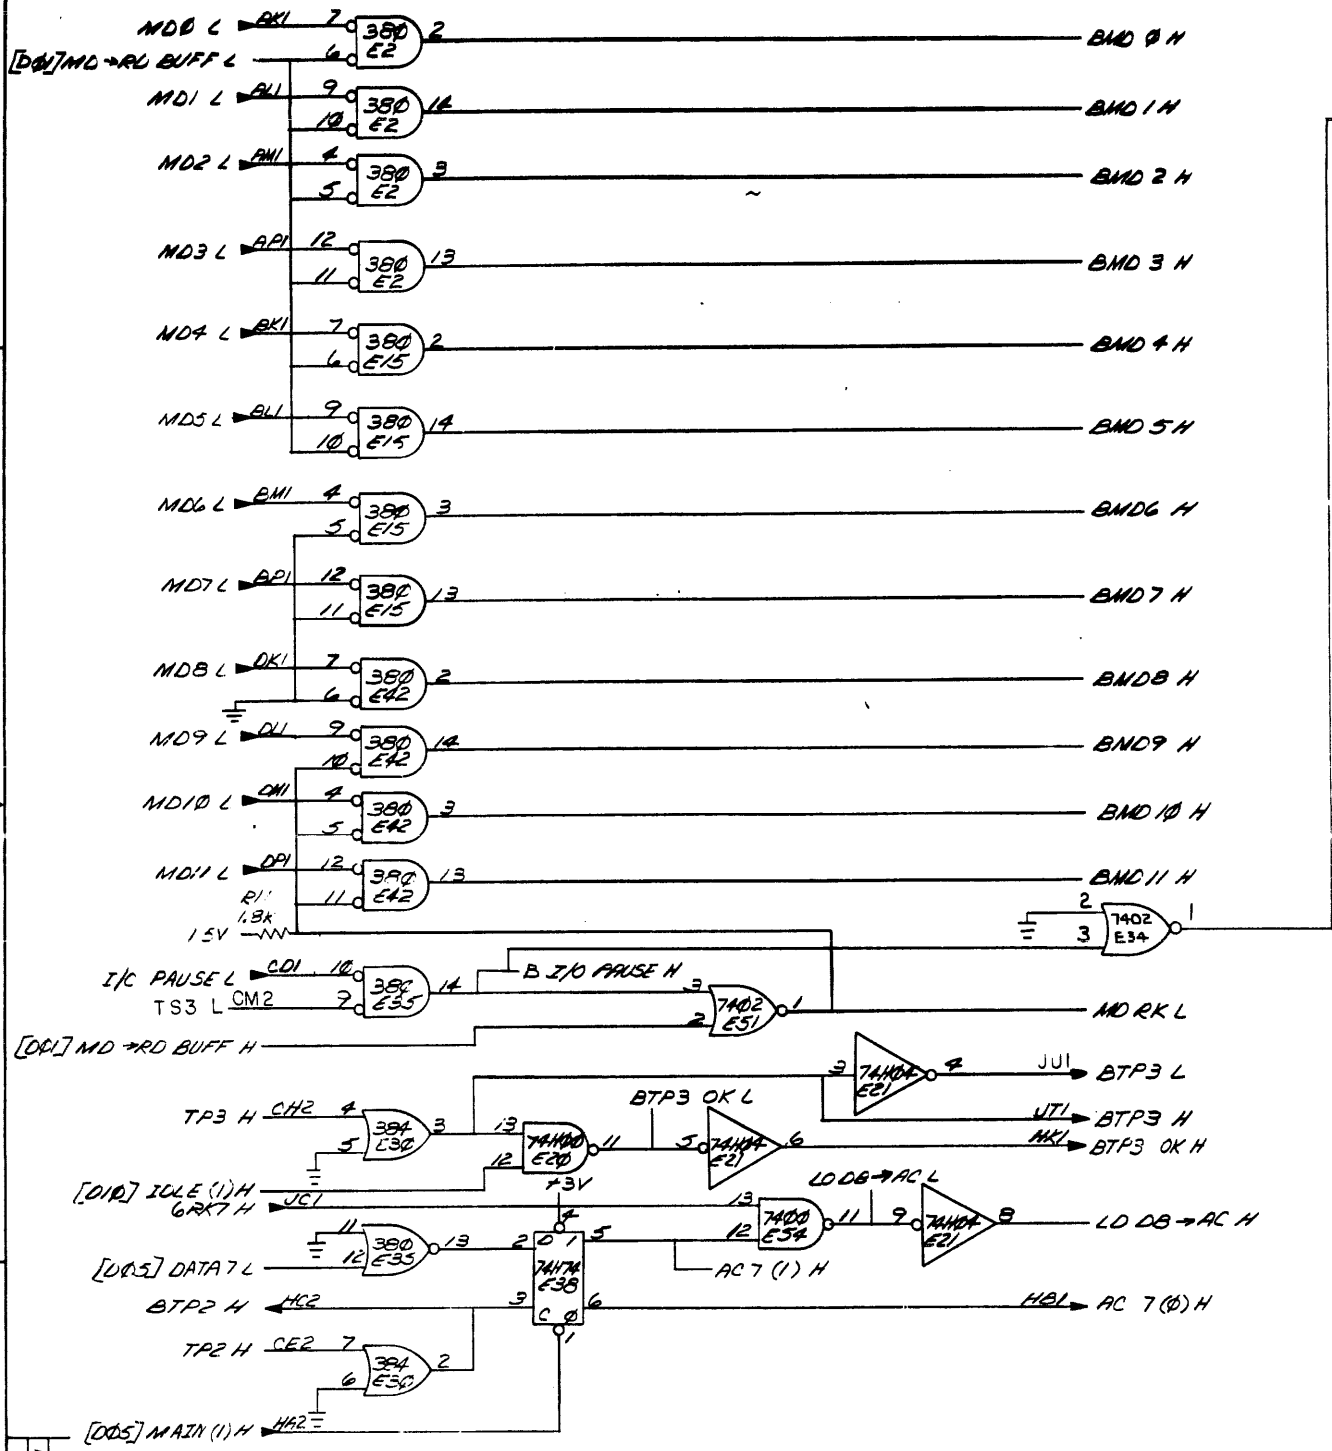 MD0 L AK1 7 380 E2 2 BMD 0 H
[D01] MD→RD BUFF L 6
MD1 L AL1 9 10 380 E2 14 BMD 1 H
MD2 L AM1 4 5 380 E2 3 BMD 2 H
MD3 L AP1 12 11 380 E2 13 BMD 3 H
MD4 L BK1 7 6 380 E15 2 BMD 4 H
MD5 L BL1 9 10 380 E15 14 BMD 5 H
MD6 L BM1 4 5 380 E15 3 BMD6 H
MD7 L BP1 12 11 380 E15 13 BMD 7 H
MD8 L DK1 7 6 380 E42 2 BMD8 H
MD9 L DL1 9 10 380 E42 14 BMD9 H
MD10 L DM1 4 5 380 E42 3 BMD 10 H
MD11 L DP1 12 11 380 E42 13 BMD 11 H
R11
1.8K
15V
2 3 7402 E34 1
I/C PAUSE L CD1 10 380 E35 14 B I/O PAUSE H
TS3 L CM2 9
3 2 7402 E51 1 MD RK L
[D01] MD→RD BUFF H
3 74H04 E21 4 JU1 BTP3 L
BTP3 OK L
TP3 H CH2 4 5 384 E30 3
JT1 BTP3 H
13 12 74H00 E20 11 5 74H04 E21 6 HK1 BTP3 OK H
[D10] IDLE (1) H
+3V
LD DB→AC L
6RK7 H JC1 13 12 7400 E54 11 9 74H04 E21 8 LD DB→AC H
[D05] DATA 7 L 11 12 380 E35 13
4 2 D 1 5 74H74 E38 3 C 0 6 1
AC 7 (1) H
BTP2 H HC2
HB1 AC 7(0) H
TP2 H CE2 7 6 384 E30 2
[D05] MAIN (1) H HA2